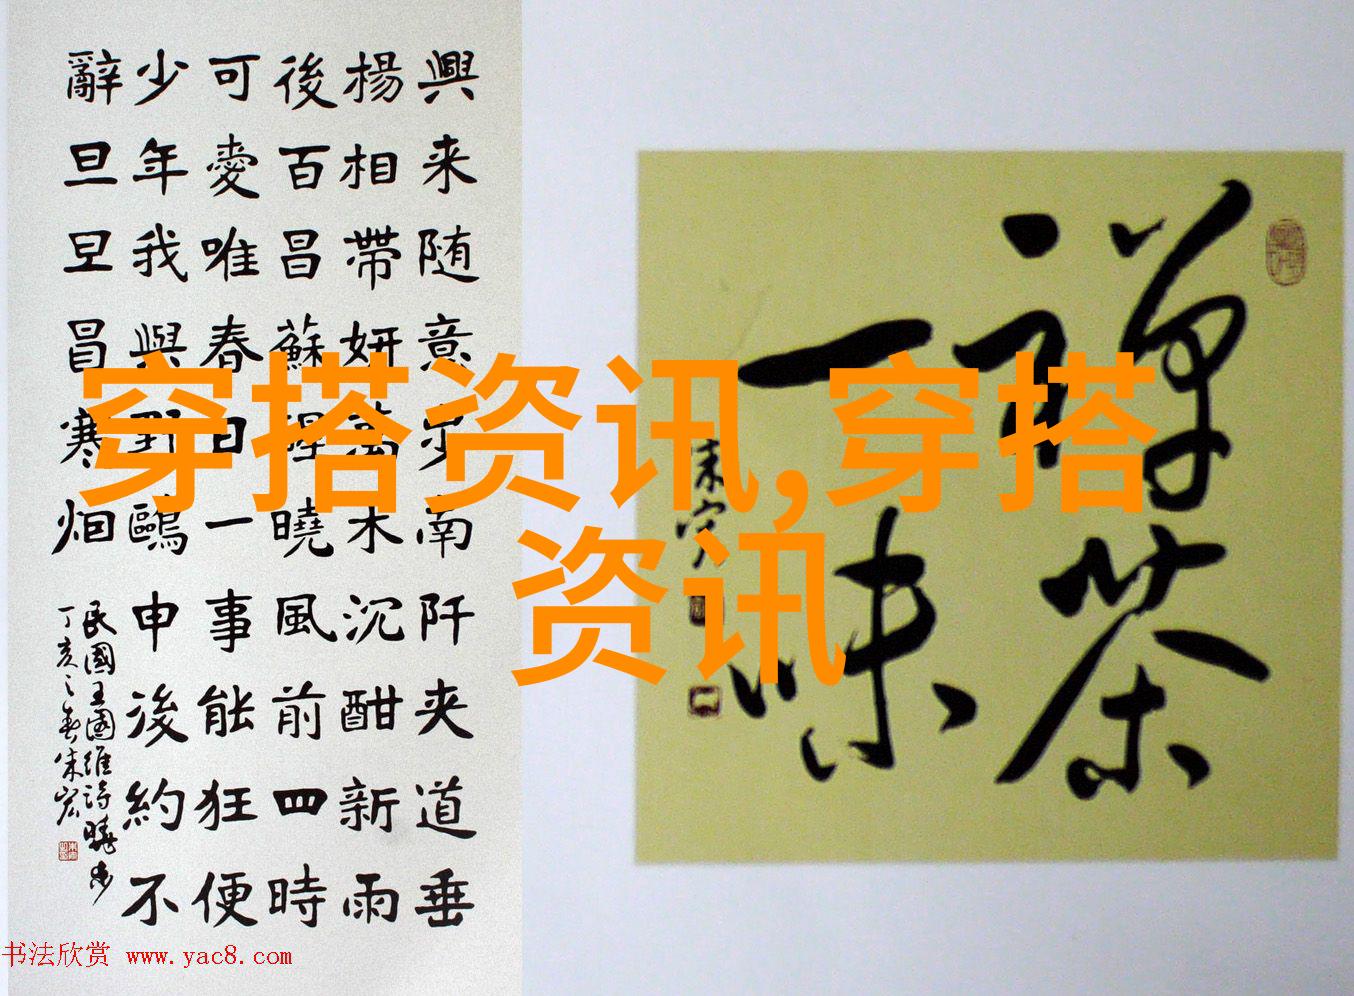 興来随意步南阡夹道垂
楊相帶妍萬木沉酣新雨
後百昌蘇醒曉風前四時
可愛唯春日一事能狂便
少年我與野鷗申後約不
辭旦旦冒寒烟
民國王國維詩曉步
丁亥之春朱宏
禅茶
一味
朱宏
穿搭资讯,穿搭
资讯
书法欣赏 www.yac8.com